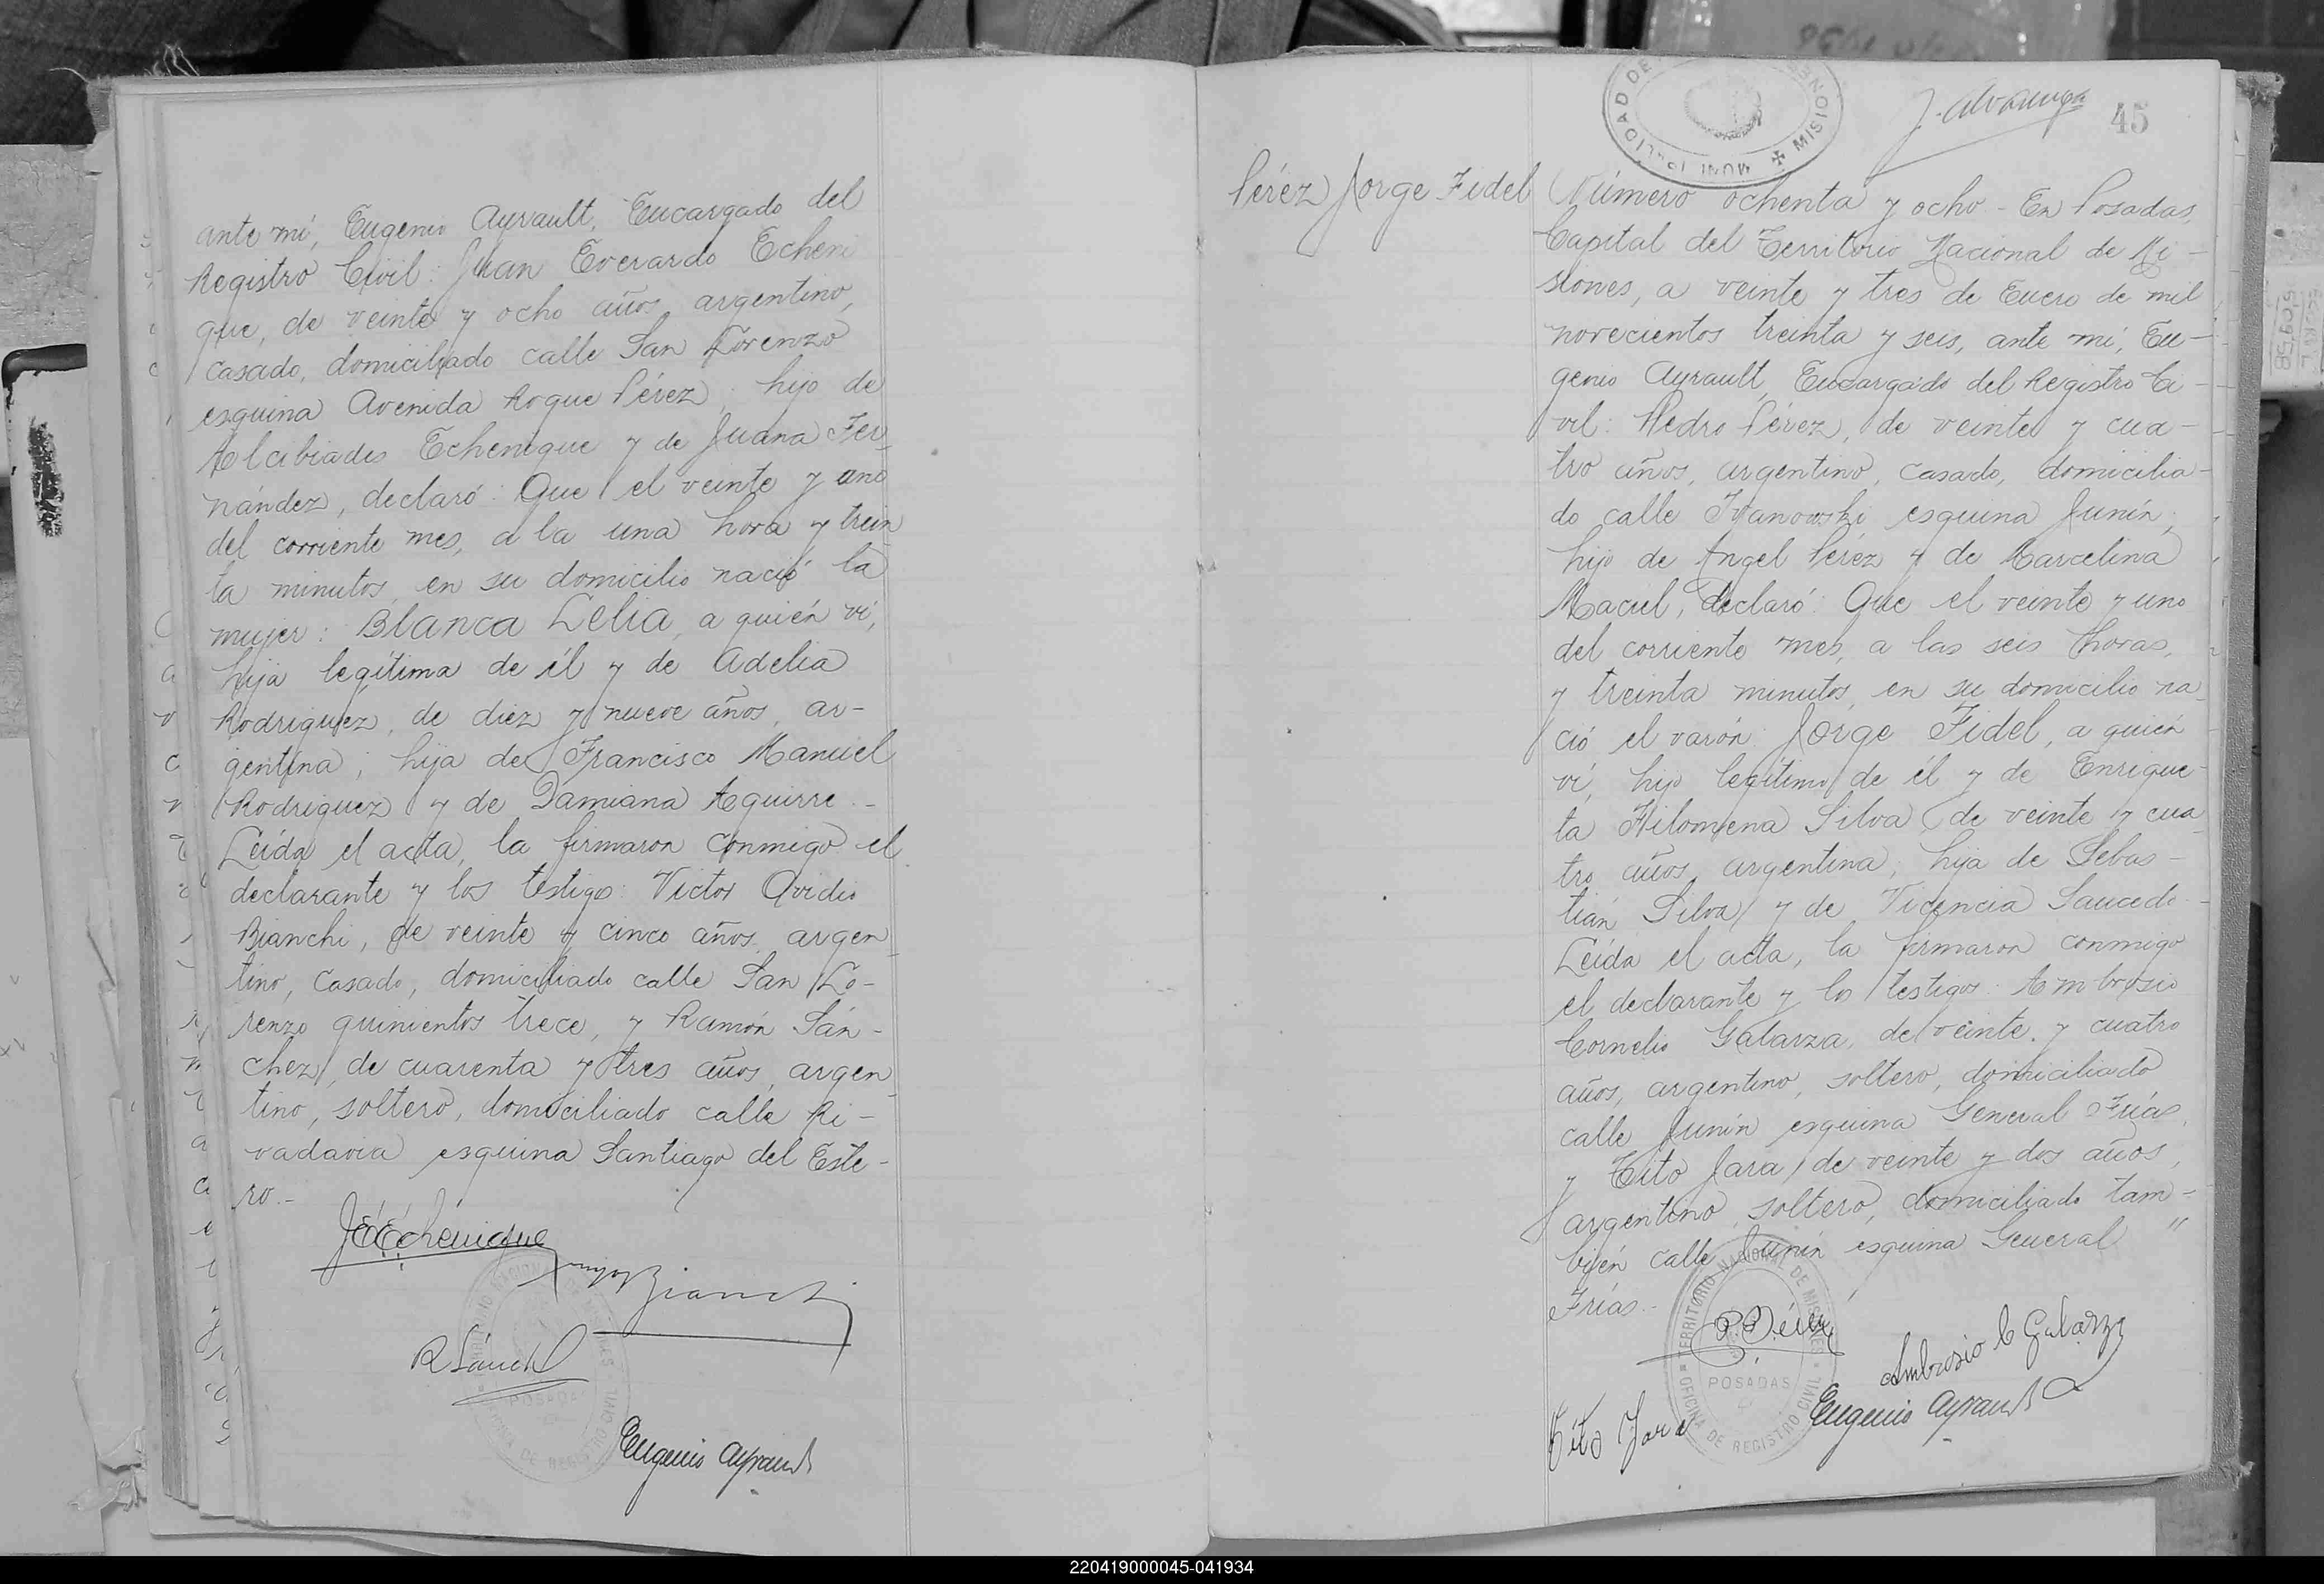 ante mí, Eugenio Ayrault, Encargado del
Registro Civil: Juan Everardo Echeni
que, de veinte y ocho años, argentino,
casado, domiciliado calle San Lorenzo
esquina Avenida Roque Pérez; hijo de
Alcibiades Echenique y de Juana Fer-
nández, declaró: Que el veinte y uno
del corriente mes, a la una hora y trein
ta minutos, en su domicilio nació la
mujer: Blanca Lelia, a quién ví,
hija legítima de él y de Adelia
Rodriguez, de diez y nueve años, ar-
gentina; hija de Francisco Manuel
Rodriguez y de Damiana Aguirre.-
Leída el acta, la firmaron conmigo el
declarante y los testigos: Victor Ovidio
Bianchi, de veinte y cinco años, argen
tino, casado, domiciliado calle San Lo-
renzo quinientos trece, y Ramón Sán-
chez, de cuarenta y tres años, argen
tino, soltero, domiciliado calle Ri-
vadavia esquina Santiago del Este-
ro.-
J E Echenique
Bianchi
R Sánch
TERRITORIO NACIONAL DE MISIONES
POSADAS
OFICINA DE REGISTRO CIVIL
Eugenio Ayrault
MUNICIPALIDAD DE MISIONES
J. Alvarenga
45
Pérez Jorge Fidel
Número ochenta y ocho - En Posadas,
Capital del Territorio Nacional de Mi-
siones, a veinte y tres de Enero de mil
novecientos treinta y seis, ante mí, Eu-
genio Ayrault, Encargado del Registro Ci-
vil: Pedro Pérez, de veinte y cua-
tro años, argentino, casado, domicilia-
do calle Ivanowski esquina Junín;
hijo de Angel Pérez y de Marcelina
Maciel, declaró: Que el veinte y uno
del corriente mes, a las seis horas,
y treinta minutos, en su domicilio na
ció el varón: Jorge Fidel, a quién
ví, hijo legítimo de él y de Enrique-
ta Filomena Silva, de veinte y cua
tro años, argentina; hija de Sebas-
tián Silva y de Vicencia Saucedo.-
Leída el acta, la firmaron conmigo
el declarante y los testigos: Ambrosio
Cornelio Galarza, de veinte y cuatro
años, argentino, soltero, domiciliado
calle Junín esquina General Frías,
y Tito Jara, de veinte y dos años,
argentino, soltero, domiciliado tam-
bién calle Junín esquina General "
Frías.-
P. Pérez
Ambrosio C Galarza
TERRITORIO NACIONAL DE MISIONES
POSADAS
OFICINA DE REGISTRO CIVIL
Tito Jara
Eugenio Ayrault
220419000045-041934